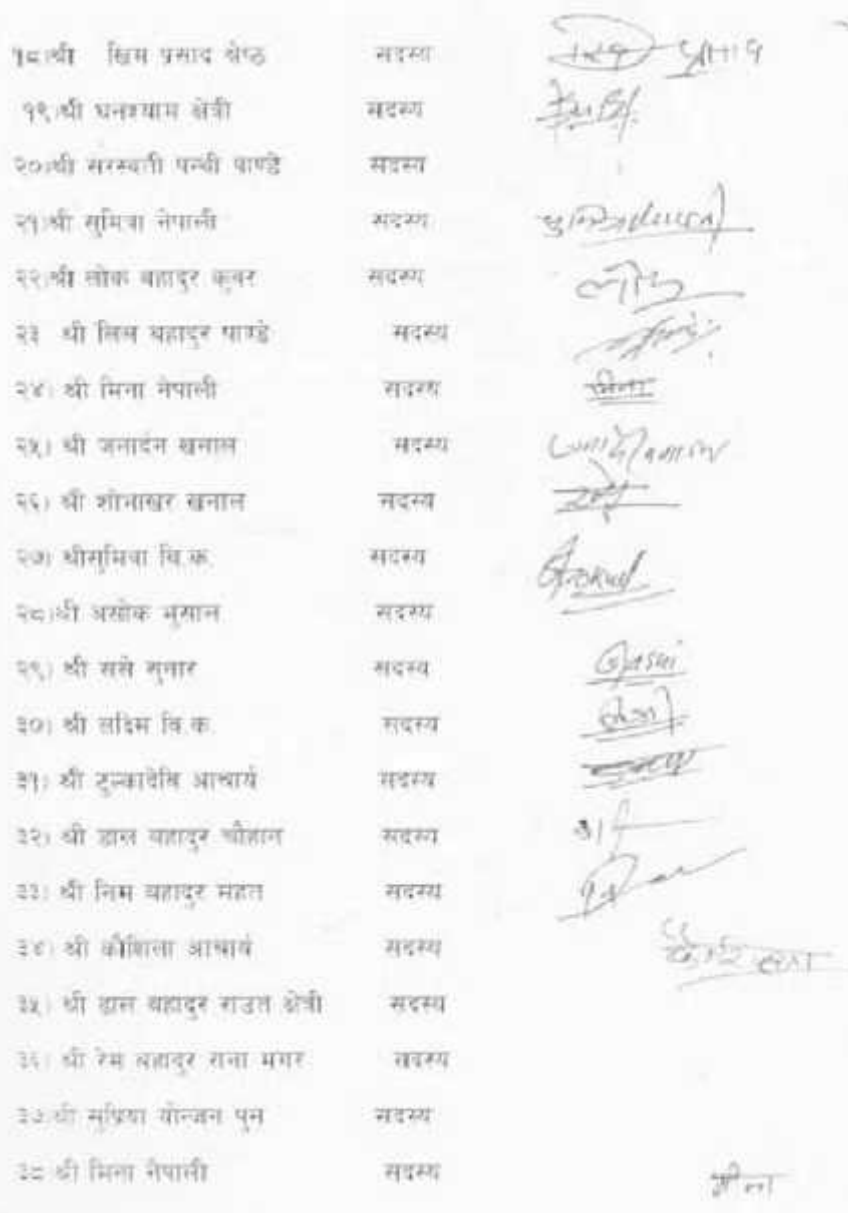 १८।श्री खिम प्रसाद श्रेष्ठ सदस्य
१९।श्री घनश्याम क्षेत्री सदस्य
२०।श्री सरस्वती पन्थी पाण्डे सदस्य
२१।श्री सुमित्रा नेपाली सदस्य
२२।श्री लोक बहादुर कुवर सदस्य लोक
२३ श्री लिल बहादुर पाण्डे सदस्य
२४। श्री मिना नेपाली सदस्य मिना
२५। श्री जनार्दन खनाल सदस्य
२६। श्री शोभाखर खनाल सदस्य
२७। श्रीसुमित्रा वि.क. सदस्य
२८।श्री असोक भुसाल सदस्य
२९। श्री ससे सुनार सदस्य
३०। श्री लक्ष्मि वि.क. सदस्य
३१। श्री टुल्कादेवि आचार्य सदस्य
३२। श्री डाल बहादुर चौहान सदस्य
३३। श्री निम बहादुर महत सदस्य
३४। श्री कौशिला आचार्य सदस्य
३५। श्री डाल बहादुर राउत क्षेत्री सदस्य
३६। श्री रेम बहादुर राना मगर सदस्य
३७।श्री सुप्रिया योन्जन पुन सदस्य
३८ श्री मिना नेपाली सदस्य मीना